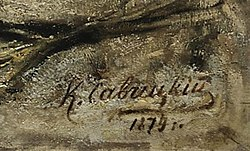 К. Савицкій
1879 г.